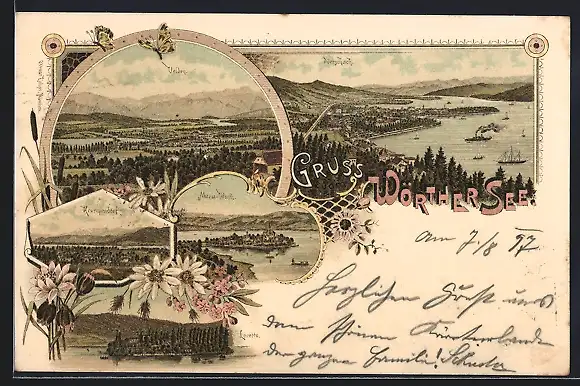 Velden
Pörtschach
GRUSS
WÖRTHER SEE.
Maria-Wörth
Krumpendorf
Loretto
am 7/8 97
Herzlichen Gruß aus
dem schönen Kärntnerlande
der ganzen Familie!